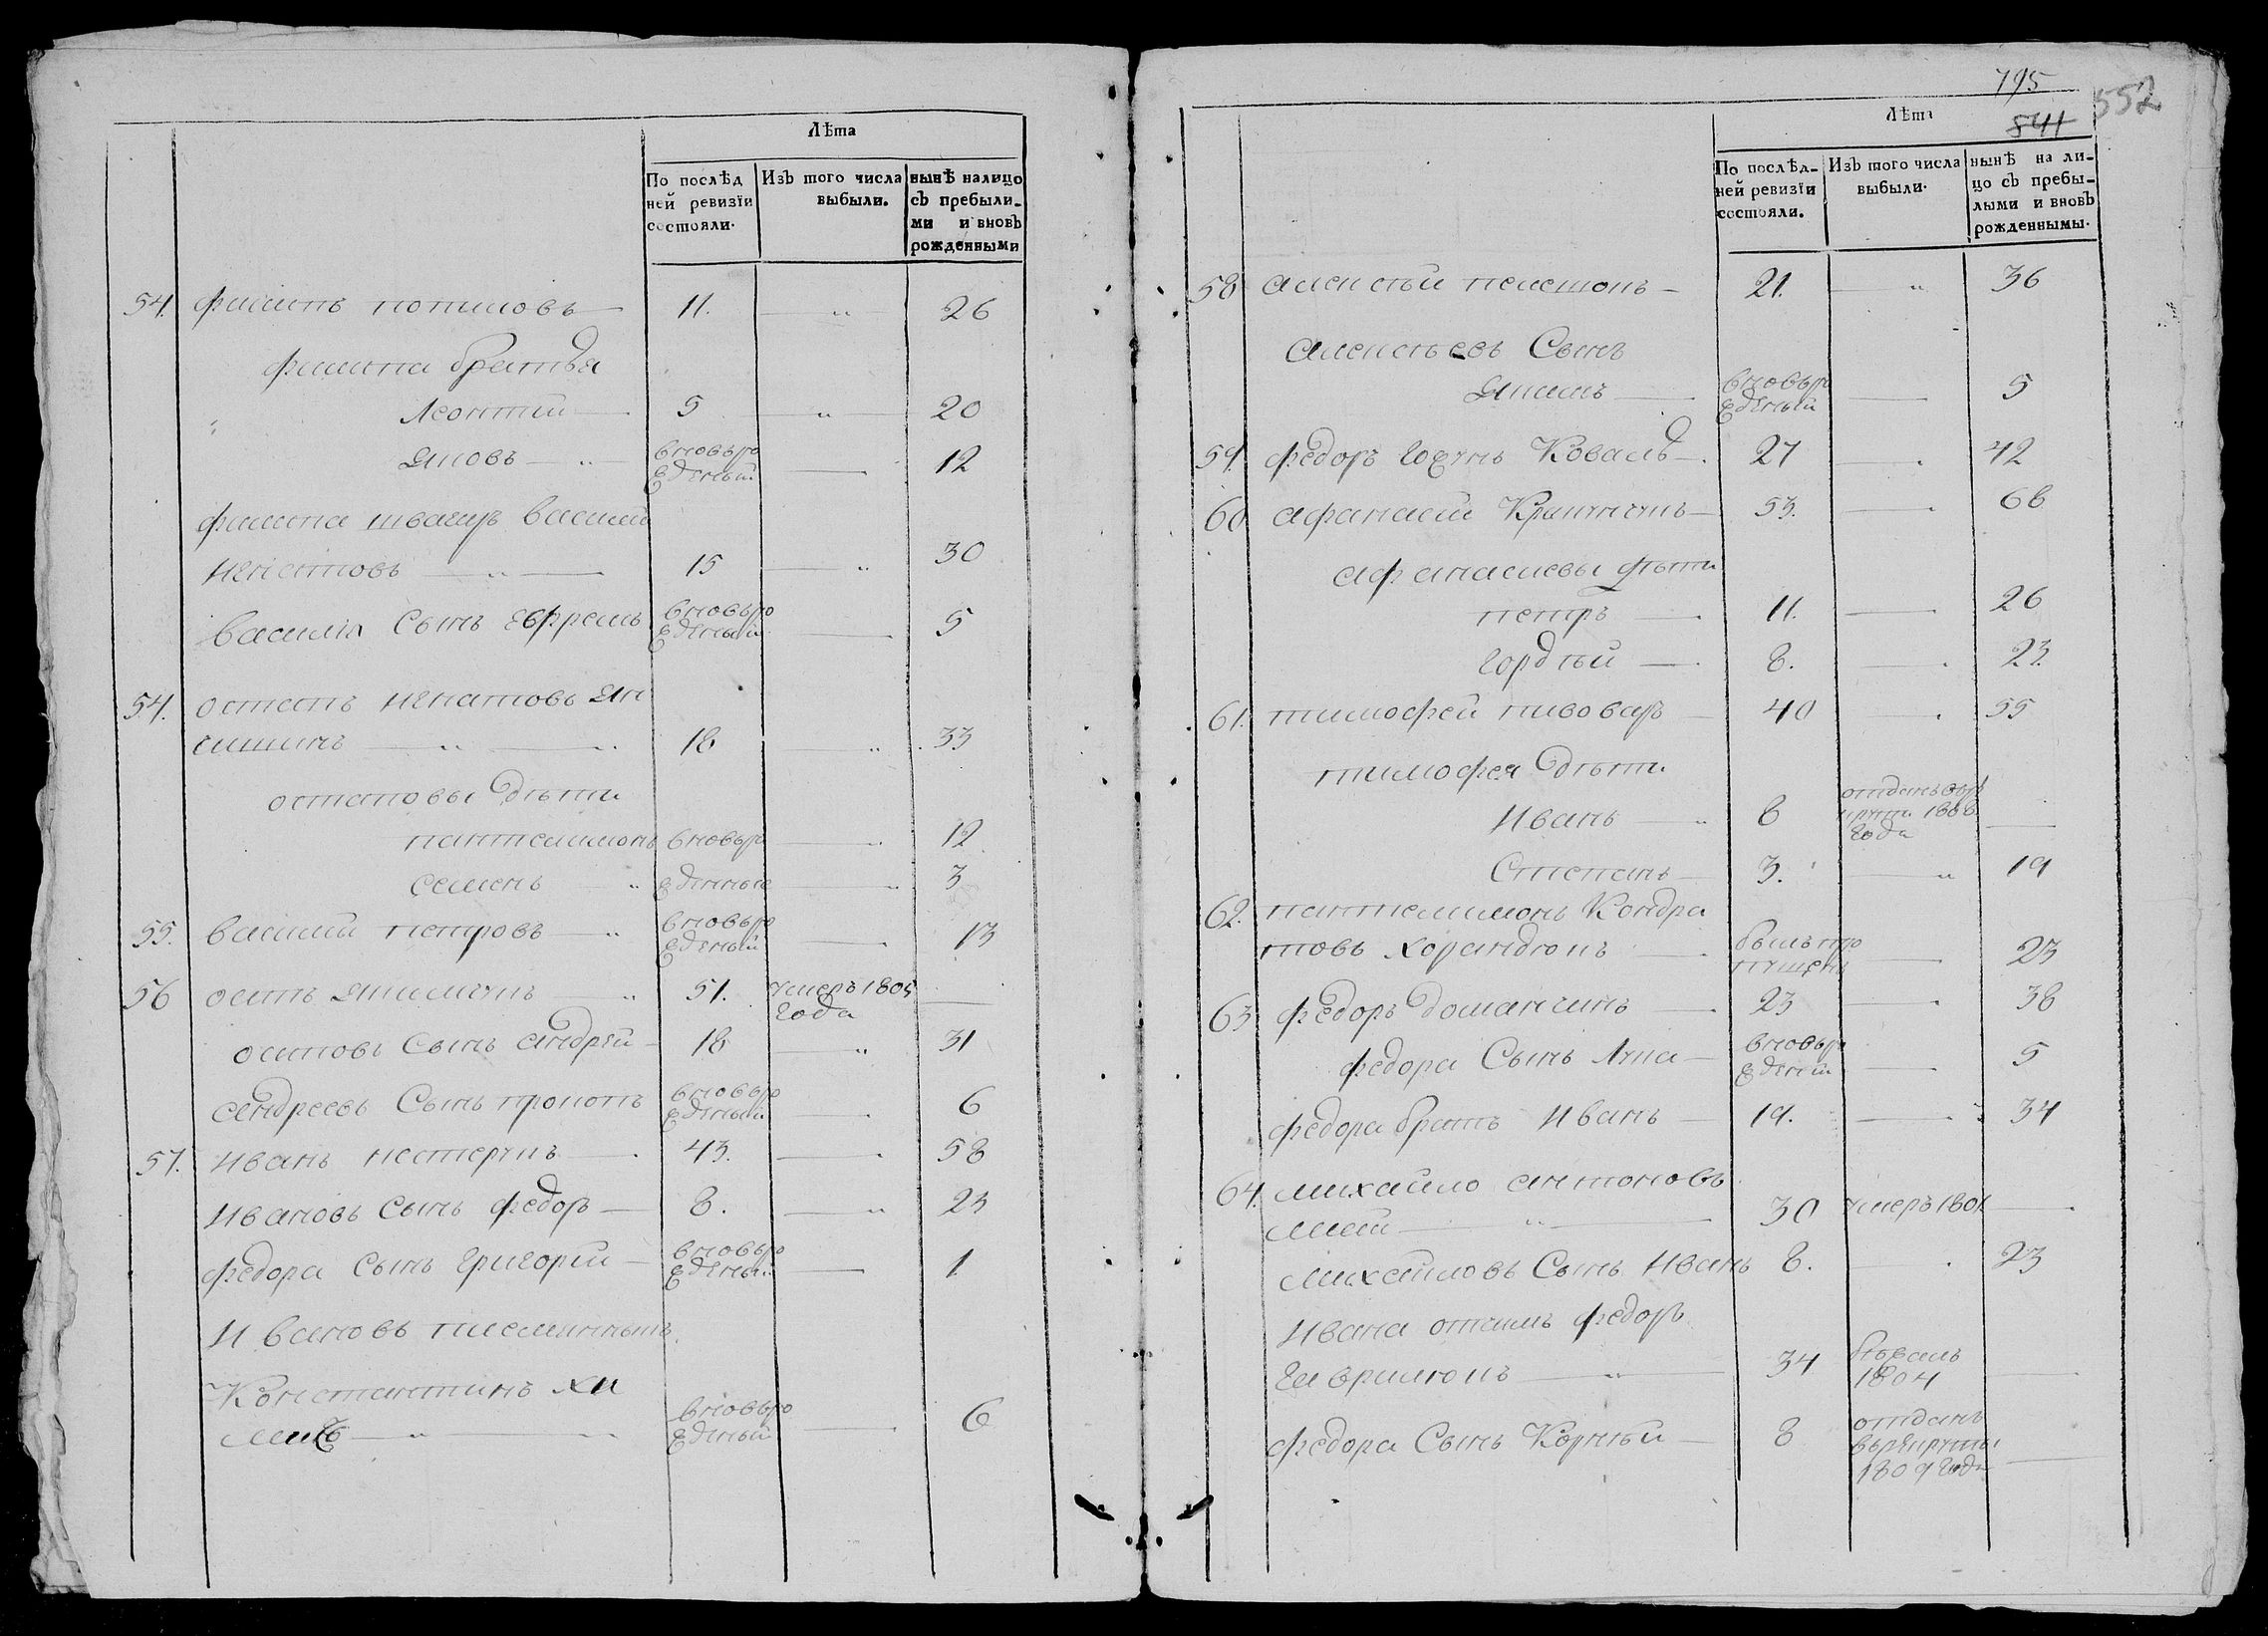 Лѣта
По послѣд
ней ревизїи
состояли.
Изъ того числа
выбыли.
нынѣ налицо
съ пребыли-
ми и вновь
рожденными
54. филипъ потаповъ 11. 26
филипа братья
Леонтии 5 20
яковъ вновьро 12
жденый
филипа швагиръ василии
игнатовъ 15 30
василія сынъ ефремъ вновьро 5
жденый
54. остапъ игнатовъ
18 33
остаповы дѣти
пантелимонъ вновьро 12
семенъ жденные 3
55. василии петровъ вновьро 13
жденый
56 осипъ якимчукъ 51. умеръ 1805
года
осиповъ сынъ андрей 18 31
андреевъ сынъ прокопъ вновьро 6
жденый
57. иванъ нестерукъ 43. 58
ивановъ сынъ федоръ 8. 23
федора сынъ григории вновьро 1
жденый
ивановъ племянникъ
константинъ вновьро 6
жденый
795
552
Лѣта 841
По послѣд-
ней ревизїи
состояли.
Изъ того числа
выбыли.
нынѣ на ли-
цо съ пребы-
лыми и вновь
рожденнымы.
58 алексѣй пелешокъ 21. 36
алексѣевъ сынъ
якимъ вновьро 5
жденый
59. федоръ коваль 27 42
60 афанасий 53. 68
афанасиевы дѣти
петръ 11. 26
гордѣй 8. 23.
61. тимофей пивоваръ 40 55
тимофея дѣти
иванъ 8 отданъ врѣ
круты 1808
года
степанъ 3. 19
62. пантелимонъ кондра
товъ хорандюкъ былъ про 23
пущенъ
63 федоръ доманчинъ 23 38
федора сынъ лука вновьро 5
жденый
федора братъ иванъ 19. 34
64. михайло антоновъ
30 умеръ 1801
михайловъ сынъ иванъ 8. 23
ивана отчимъ федоръ
гаврилюкъ 34 бѣжалъ
1804
федора сынъ корнѣй 8 отданъ
врекруты
1809 года